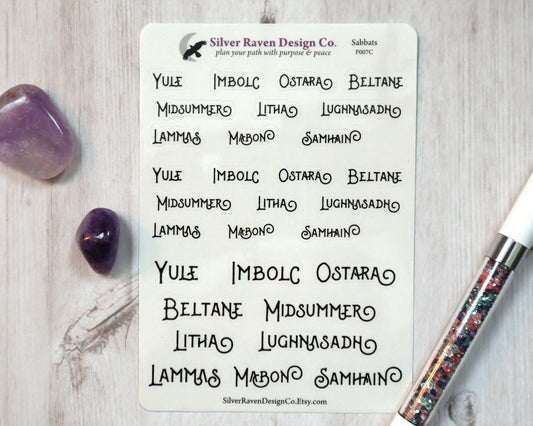 Silver Raven Design Co.
plan your path with purpose & peace
Sabbats
P007C
Yule Imbolc Ostara Beltane
Midsummer Litha Lughnasadh
Lammas Mabon Samhain
Yule Imbolc Ostara Beltane
Midsummer Litha Lughnasadh
Lammas Mabon Samhain
Yule Imbolc Ostara
Beltane Midsummer
Litha Lughnasadh
Lammas Mabon Samhain
SilverRavenDesignCo.Etsy.com